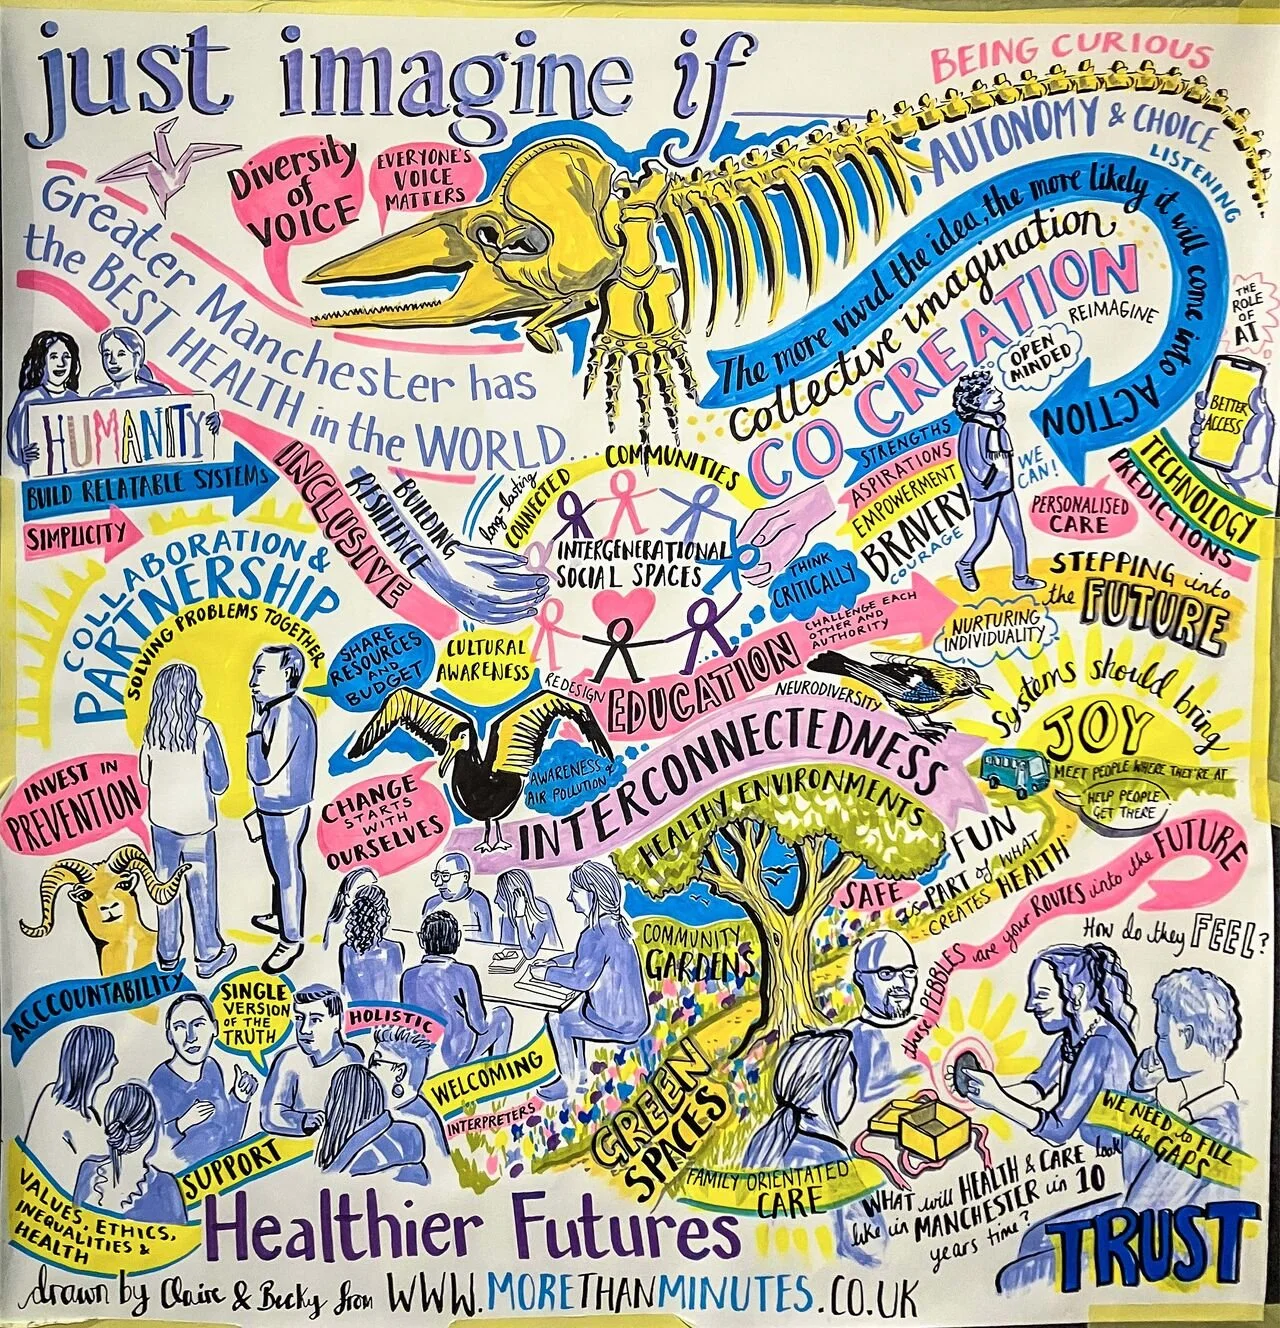 just imagine if
BEING CURIOUS
AUTONOMY & CHOICE
LISTENING
Diversity
of
VOICE
EVERYONE'S
VOICE
MATTERS
Greater Manchester has
the BEST HEALTH in the WORLD...
The more vivid the idea, the more likely it will come into ACTION
Collective imagination
CO CREATION
REIMAGINE
OPEN
MINDED
THE
ROLE
OF
AT
BETTER
ACCESS
HUMANITY
BUILD RELATABLE SYSTEMS
SIMPLICITY
INCLUSIVE
BUILDING
RESILIENCE
long-lasting
CONNECTED
COMMUNITIES
INTERGENERATIONAL
SOCIAL SPACES
STRENGTHS
ASPIRATIONS
EMPOWERMENT
BRAVERY
COURAGE
WE
CAN!
PERSONALISED
CARE
TECHNOLOGY
PREDICTIONS
THINK
CRITICALLY
CHALLENGE EACH
OTHER AND
AUTHORITY
STEPPING into
the FUTURE
NURTURING
INDIVIDUALITY
COLLABORATION &
PARTNERSHIP
SOLVING PROBLEMS TOGETHER
SHARE
RESOURCES
AND
BUDGET
CULTURAL
AWARENESS
REDESIGN
EDUCATION
NEURODIVERSITY
Systems should bring
JOY
MEET PEOPLE WHERE THEY'RE AT
HELP PEOPLE
GET THERE
INVEST IN
PREVENTION
CHANGE
STARTS
WITH
OURSELVES
AWARENESS &
AIR POLLUTION
INTERCONNECTEDNESS
HEALTHY ENVIRONMENTS
SAFE
FUN
is PART of WHAT
CREATES HEALTH
these PEBBLES are your ROUTES into the FUTURE
How do they FEEL?
COMMUNITY
GARDENS
ACCCOUNTABILITY
SINGLE
VERSION
OF THE
TRUTH
HOLISTIC
WELCOMING
INTERPRETERS
GREEN
SPACES
FAMILY ORIENTATED
CARE
WE NEED to FILL
the GAPS
SUPPORT
VALUES, ETHICS,
INEQUALITIES &
HEALTH
WHAT will HEALTH & CARE look
like in MANCHESTER in 10
years time?
TRUST
Healthier Futures
drawn by Claire & Becky from WWW.MORETHANMINUTES.CO.UK